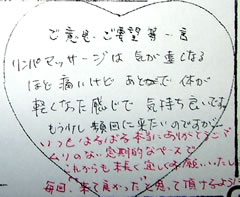 ご意見・ご要望等一言
リンパマッサージは気が重くなる
ほど痛いけど あとで 体が
軽くなった感じで 気持ち良いです。
もう少し頻回に来たいのですが…
いつもよるばる本当にありがとうござ
ムリのない定期的なペースで
これからも末長く宜しくお願いいたしま
毎回、来て良かったと思って頂けるよう